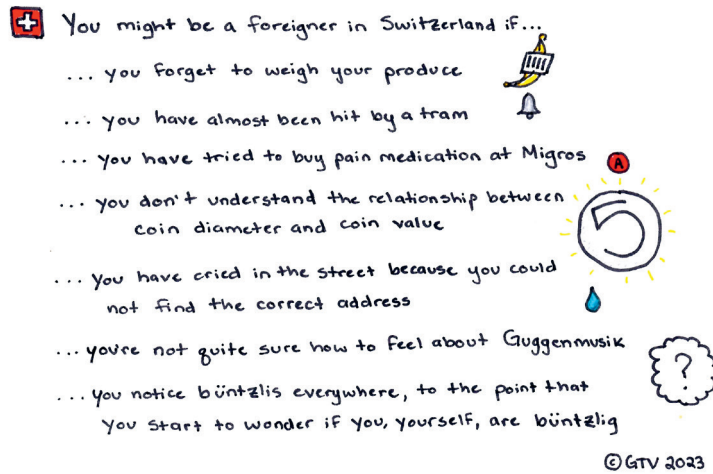 You might be a foreigner in Switzerland if...
... you forget to weigh your produce
... you have almost been hit by a tram
... you have tried to buy pain medication at Migros
A
... you don't understand the relationship between
coin diameter and coin value
5
... you have cried in the street because you could
not find the correct address
... you're not quite sure how to feel about Guggenmusik
?
... you notice büntzlis everywhere, to the point that
you start to wonder if you, yourself, are büntzlig
© GTV 2023